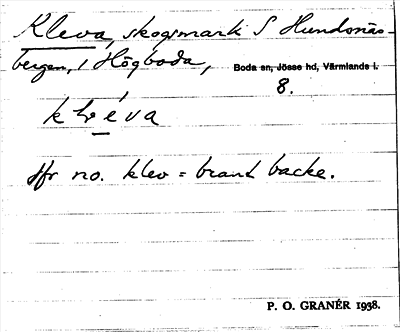 Kleva, skogsmark i S Hundsnäs-
bergen, i Högboda, Boda sn, Jösse hd, Värmlands l.
8.
kléva
Jfr no. klev = brant backe.
P. O. GRANÉR 1938.